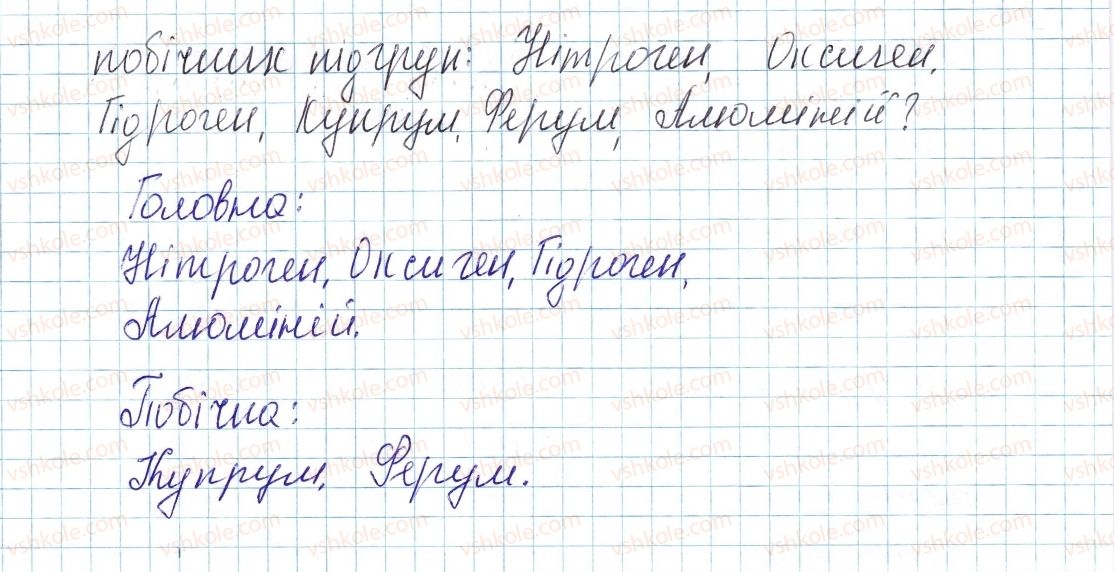 побічних підгруп: Нітроген, Оксиген,
Гідроген, Купрум, Ферум, Алюміній?
Головна:
Нітроген, Оксиген, Гідроген,
Алюміній.
Побічна:
Купрум, Ферум.